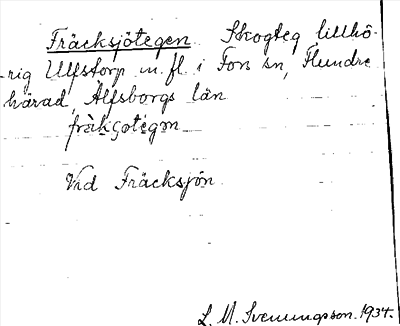 Fräcksjötegen Skogteg tillhö-
rig Ulfstorp m. fl. i Fors sn, Flundre
härad, Älfsborgs län
frä̀kʂotegən
Vid Fräcksjön
L. M. Svenungsson. 1934.